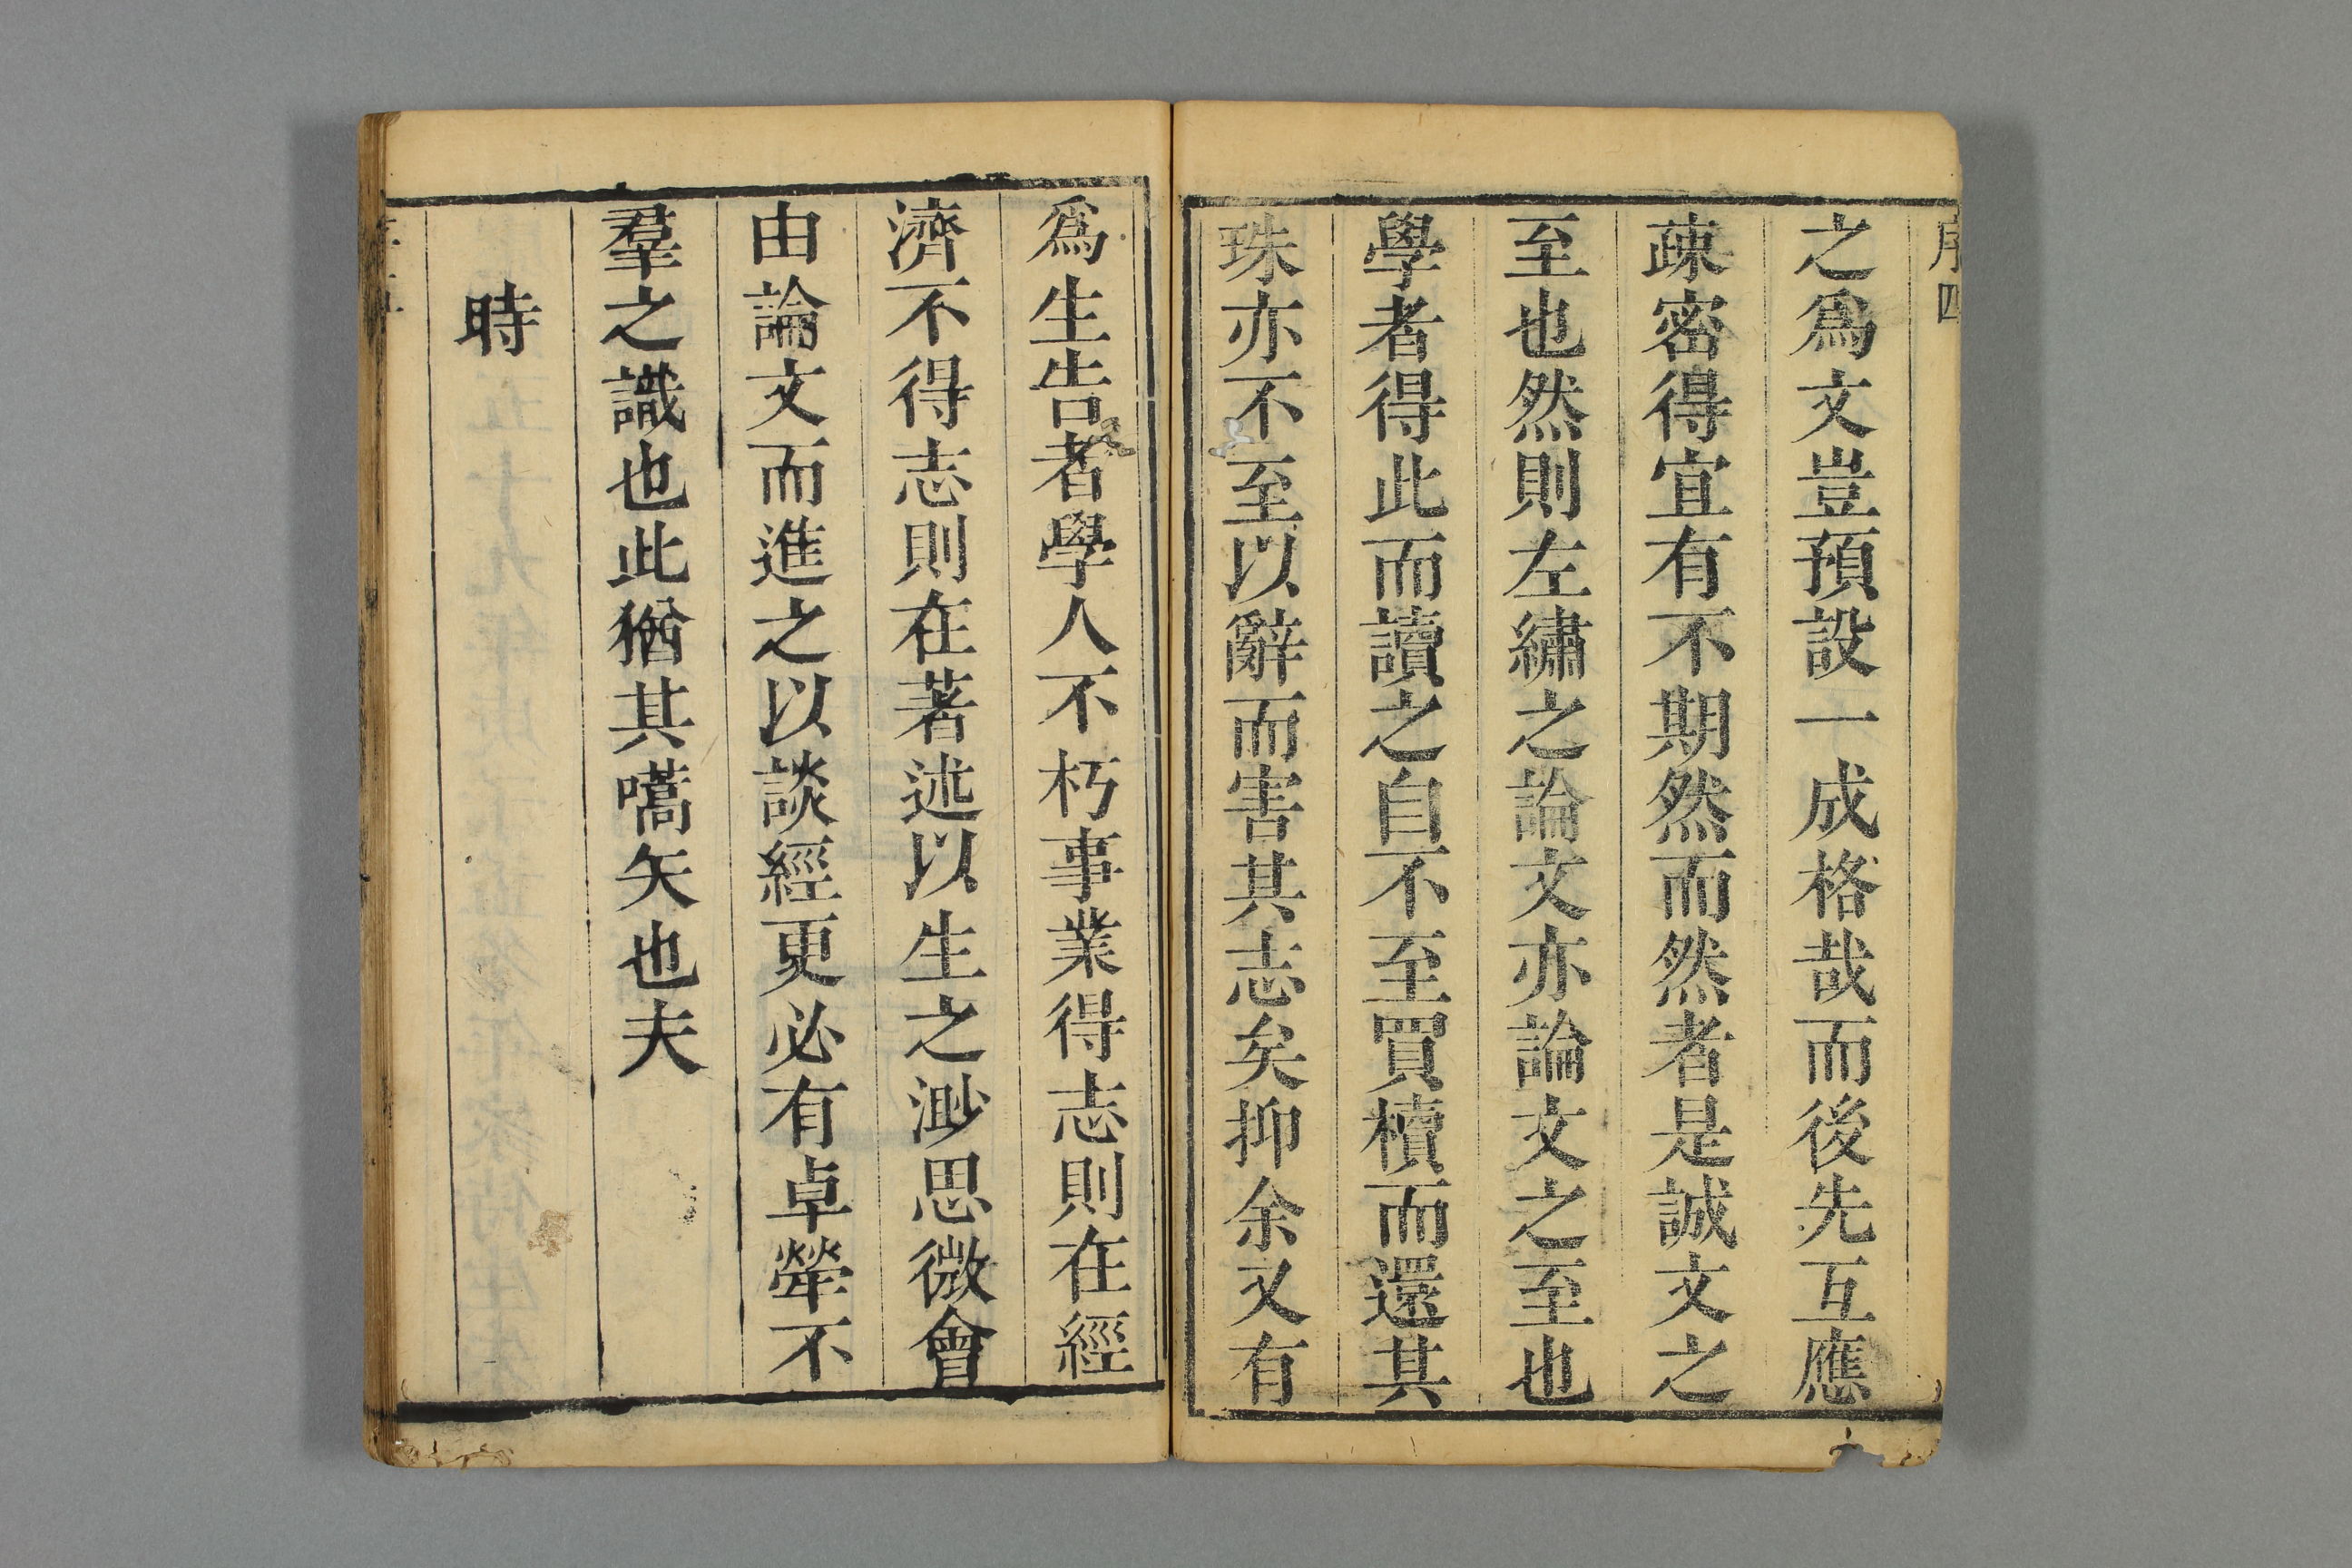 序四
之爲文豈預設一成格哉而後先互應
疎密得宜有不期然而然者是誠文之
至也然則左繡之論文亦論文之至也
學者得此而讀之自不至買櫝而還其
珠亦不至以辭而害其志矣抑余又有
爲生告者學人不朽事業得志則在經
濟不得志則在著述以生之渺思微會
由論文而進之以談經更必有卓犖不
羣之識也此猶其嚆矢也夫
時